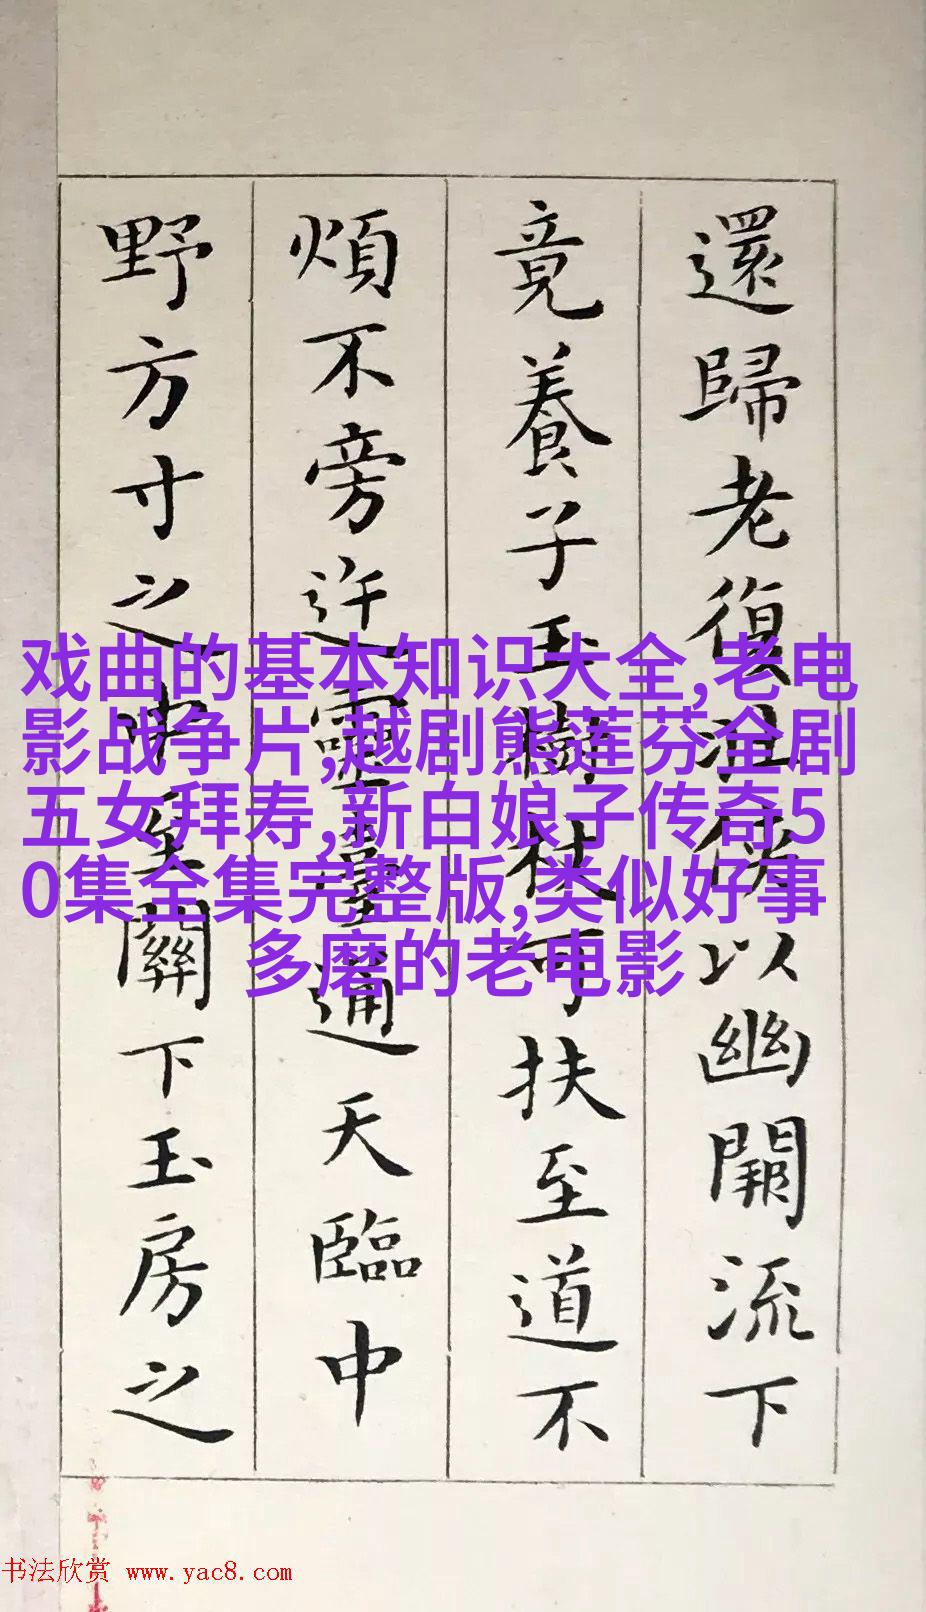 還歸老復俠以幽闕流下
竟養子玉樹杖可扶至道不
煩不旁迕靈臺通天臨中
野方寸之中至關下玉房之
戏曲的基本知识大全,老电
影战争片,越剧熊莲芬全剧
五女拜寿,新白娘子传奇5
0集全集完整版,类似好事
多磨的老电影
书法欣赏 www.yac8.com